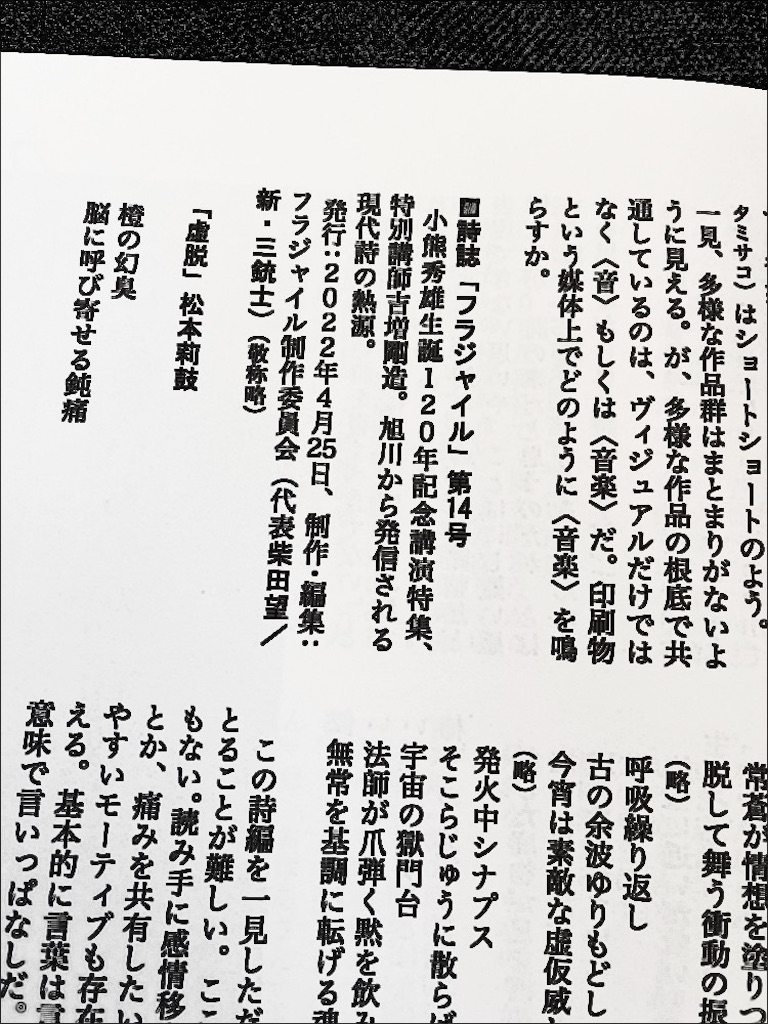 タミサコ）はショートショートのよう。
一見、多様な作品群はまとまりがないよ
うに見える。が、多様な作品の根底で共
通しているのは、ヴィジュアルだけでは
なく〈音〉もしくは〈音楽〉だ。印刷物
という媒体上でどのように〈音楽〉を鳴
らすか。
■詩誌「フラジャイル」第14号
小熊秀雄生誕１２０年記念講演特集、
特別講師吉増剛造。旭川から発信される
現代詩の熱源。
発行：２０２２年４月25日、制作・編集：
フラジャイル制作委員会（代表柴田望／
新・三銃士）（敬称略）
「虚脱」松本莉鼓
橙の幻臭
脳に呼び寄せる鈍痛
常蒼が情想を塗りつ
脱して舞う衝動の振
（略）
呼吸繰り返し
古の余波ゆりもどし
今宵は素敵な虚仮威し
（略）
発火中シナプス
そこらじゅうに散らば
宇宙の獄門台
法師が爪弾く黙を飲み
無常を基調に転げる魂
この詩編を一見しただ
とることが難しい。こ
もない。読み手に感情移
とか、痛みを共有したい
やすいモーティブも存在
える。基本的に言葉は言
意味で言いっぱなしだ。